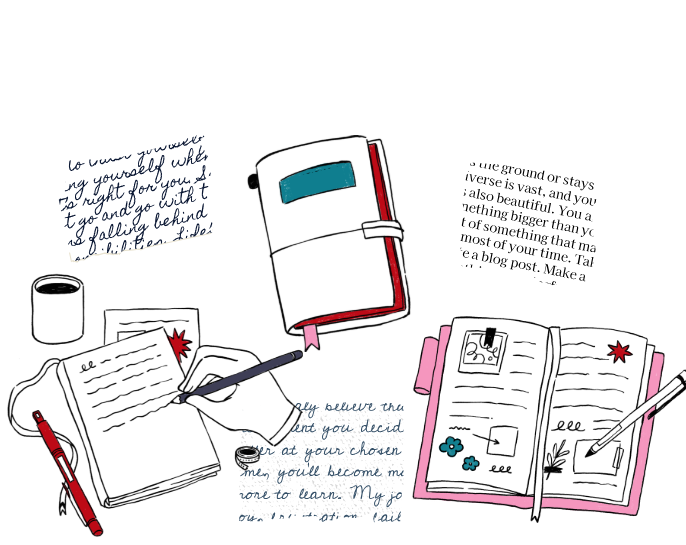 ng yourself whe
s right for you. S
t go and go with t
s falling behind
s the ground or stays
iverse is vast, and you
also beautiful. You a
nething bigger than yo
t of something that ma
most of your time. Tak
e a blog post. Make a
ply believe tha
ent you decid
er at your chosen
me, you'll become mo
more to learn. My jo